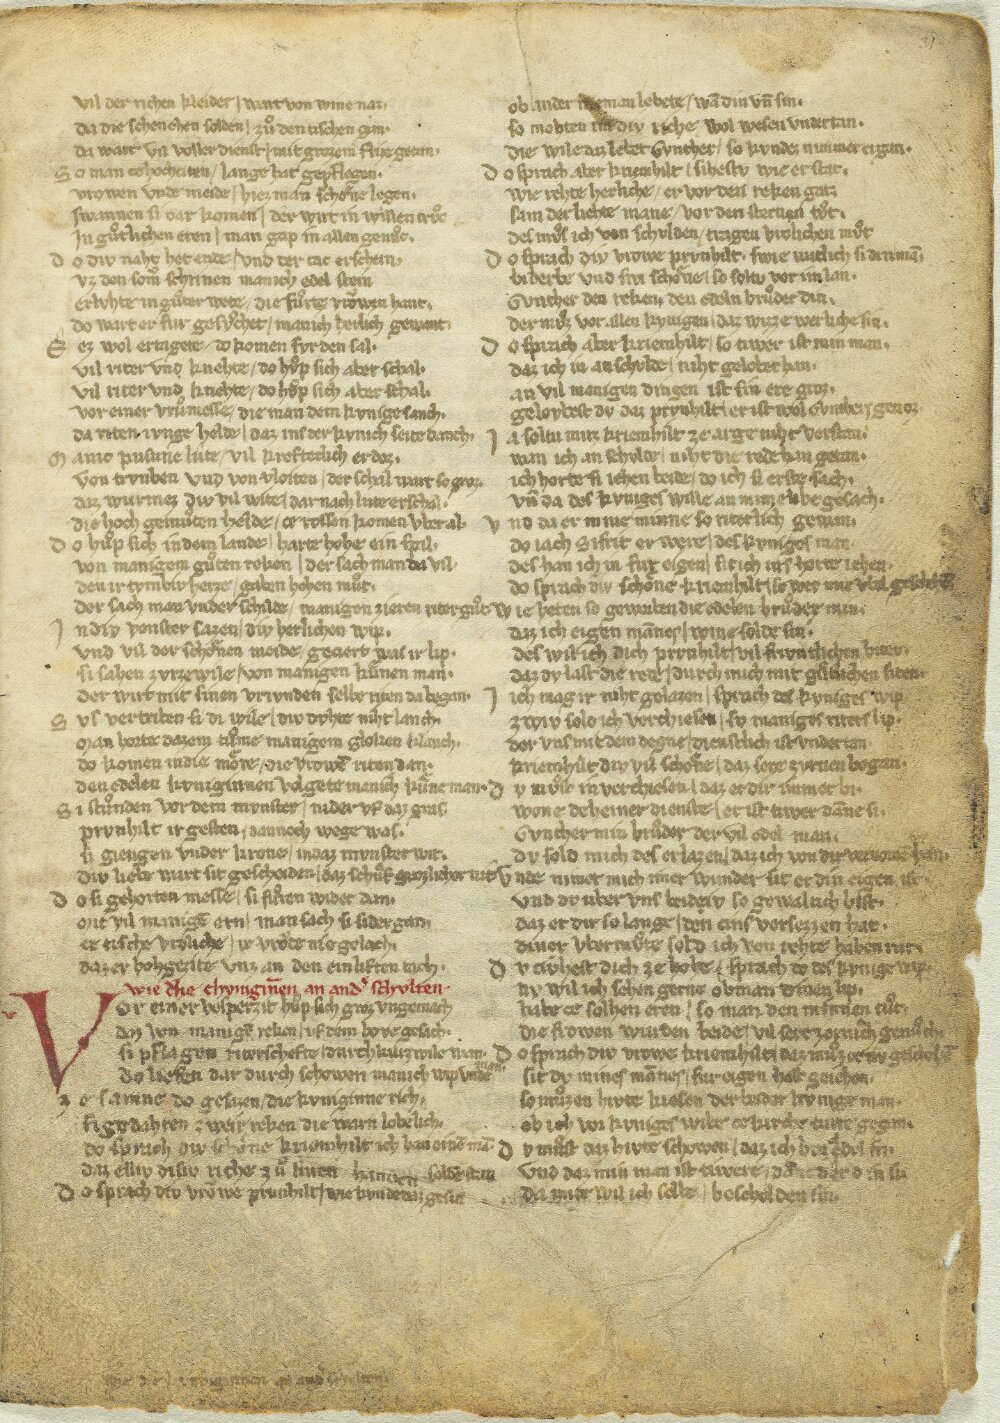 vil der richen kleider / wart von wine naz.
da die schenchen solden / zů den tischen gan.
da wart vil voller dienst / mit grozem flize getan.
So man ce hochciten / lange hat gepflegen.
vrowen vnde meide / hiez man schone legen.
swannen si dar komen / der wirt in willen trůc
in gůtlichen eren / man gap in allen genůc.
Do div naht het ende / vnd der tac erschein.
vz den som schrinen manich edel stein
erluhte in gůter wete / die fůrte vrowen hant.
do wart er fur gesůchet / manich herlich gewant.
E ez wol ertagete / do komen fvr den sal.
vil riter vnd knehte / do hůp sich aber schal.
vil riter vnd knehte / do hůp sich aber schal.
vor einer vrů messe / die man dem kvnige sanch.
da riten ivnge helde / daz ins der kvnich seite danch.
Manic pusune lute / vil krefteclich erdoz.
von trvnben vnd von vloiten / der schal wart so groz
daz wurmez div vil wite / dar nach lute erschal.
die hoch gemůten helde / ce rossen komen vber al.
Do hůp sich in dem lande / harte hohe ein spil.
von manigem gůten reken / der sach man da vil.
den ir tvmbiv herze / gaben hohen můt.
der sach man vnder schilde / manigen zieren riter gůt.
In div venster sazen / div herlichen wip.
vnd vil der schonen meide / geciert was ir lip.
si sahen kvrzewile / von manigen kůnen man.
der wirt mit sinen vrivnden selbe riten da began.
Svs vertriben si di wile / div dvhte niht lanch.
man horte dazem tůme manigem gloken klanch.
do komen in die more / die vrowe riten dan.
den edelen kvniginnen volgete manich kůne man.
Si stůnden vor dem mvnster / nider vf daz gras
prvnhilt ir gesten / dannoch wege was.
si giengen vnder krone / in daz mvnster wit.
div liebe wart sit gescheiden / daz schůf grozlicher nit
Do si gehorten messe / si fůren wider dan.
mit vil manigē ern / man sach si sider gan.
ce tische vroliche / ir vrode nie gelach.
daz er hohgezite vnz an den einliften tach.
wie die chvniginnen an and' schvlten
Vor einer vesperzit hůp sich groz vngemach
daz von manigē reken / vf dem hove gesach.
si pflagen riterschefte / durch kurzwile wan.
do liefen dar durch schowen manich wip vnde man
Ze samne do gesazen / die kvniginne rich.
si gedahten zweir reken die warn lobelich.
do sprach div schone kriemhilt ich han einē mā
daz elliv disiv riche zů sinen handen solden stan
Do sprach div vrowe prvnhilt / wie kvnde daz gesin
ob ander nieman lebete / wā din vn̄ sin.
so mohten im div riche wol wesen vndertan.
die wile daz lebet Gvnther / so kvndez nimmer ergan.
Do sprach aber kriemhilt / sihestv wie er stat.
wie rehte herliche / er vor den reken gat.
sam der liehte mane / vor den sternen tůt.
des můs ich von schvlden / tragen vrolichen můt
Do sprach div vrowe prvnhilt / swie wetlich si din man.
biderbe vnd swi schone / so soltv vor im lan.
Gvnther den reken / den edeln brůder din.
der můz vor allen kvnigen / daz wizze werliche sin.
Do sprach aber kriemhilt / so tiwer ist min man.
daz ich in an schvlde / niht gelobet han.
an vil manigen dingen ist sin ere groz.
geloybest dv daz prvnhilt / er ist wol Gvnthers genoz.
Ja soltu mirz kriemhilt ze arge niht verstan.
wan ich an schvlde / niht die rede han getan.
ich horte si iehen beide / do ich si erste sach.
vn̄ da des kvniges wille an minē libe gesach.
Vnd da er mine minne so riterlich gewan.
do iach Sifrit er were / des kvniges man.
des han ich in fur eigen / sit ich ins horte iehen.
do sprach div schone kriemhilt / so wer mir vbel geschehē
Wie heten so geworben die edelen brůder min.
daz ich eigen mānes / wine solde sin.
des wil ich dich prvnhilt / vil friwntlichen biten.
daz dv last die rede / durch mich mit gůtlichen siten.
Ich mag ir niht gelazen / sprach des kvniges wip
zwiv sold ich verchiesen / so maniges riters lip.
der vns mit dem degne / dienstlich ist vndertan.
kriemhilt div vil schone / daz sere zvrnen began.
Dv můst in verchiesen / daz er dir immer bi.
wone deheiner dienste / er ist tiwer danne si.
Gvnther min brůder der vil edel man.
dv sold mich des erlazen / daz ich von dir vernomē han.
Vnde nimet mich imer wunder sit er din eigen ist
vnd dv vber vns beidiv so gewaltich bist.
daz er dir so lange / den cins versezzen hat.
diner vbermůte sold ich von rehte haben rat.
Dv ciuhest dich ze hohe / sprach do des kvnige wip.
nv wil ich sehen gerne ob man dinen lip.
habe ce solhen eren / so man den minen tůt.
die frowen wurden beide / vil sere zornich gemůt.
Do sprach div vrowe kriemhilt / daz můz ce nv geschehē
sit dv mines mānes / fur eigen hast geiehen.
so můzen hivte kiesen der beider kvnige man.
ob ich vor kvniges wibe ce kirche turre gegan.
Dv můst daz hivte schowen / daz ich bin edel fri.
vnd daz min man ist tiwere / danne der din si
da mite wil ich selbe / bescholden sin.
wie die kvniginnen an and' schvlten